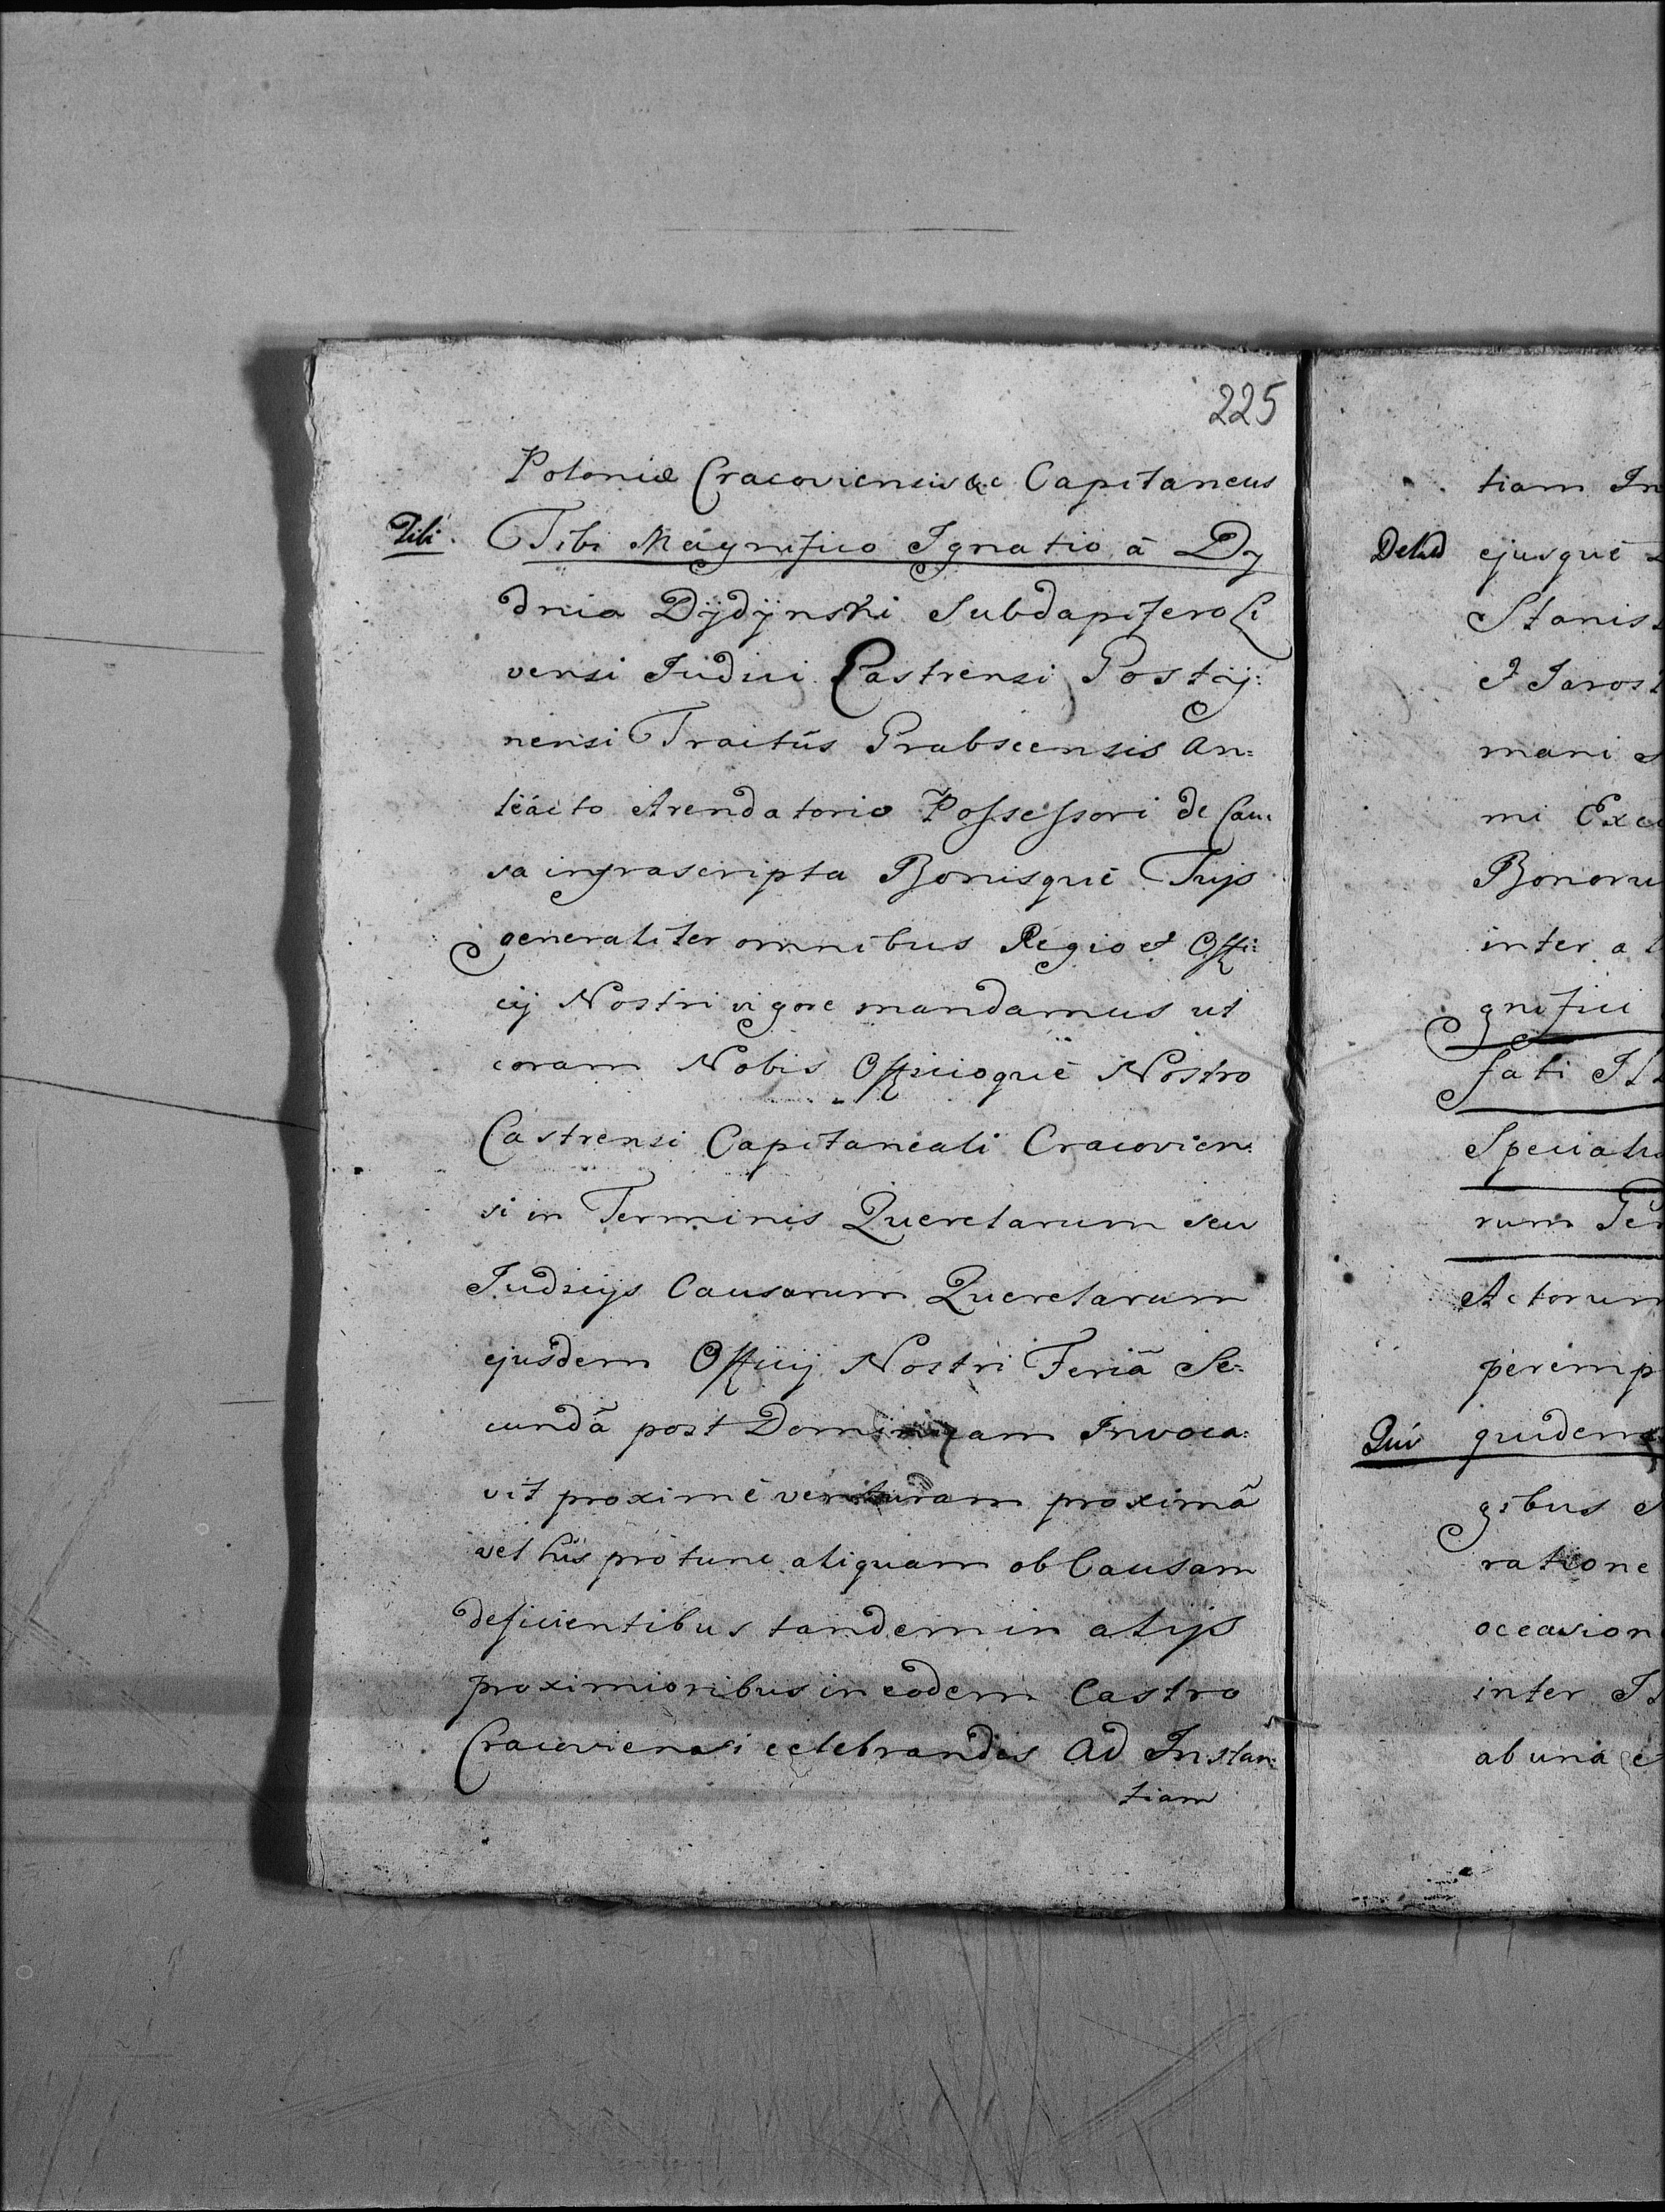 225
Poloniæ Cracoviensis &c Capitaneus
Tibi. Tibi Magnifico Ignatio â Dy
dnia Dÿdÿnski Subdapifero Li
vensi Judici Castrensi Postÿ:
nensi Tractûs Grabscensis An=
teácto Arendatorio Possessori de Cau:
sa infrascripta Bonisquè Tuijs
generaliter omnibus Regio et Offi:
cij Nostri vigore mandamus ut
coram Nobis Officioquè Nostro
Castrensi Capitaneali Cracovien:
si in Terminis Querelarum seu
Judicijs Causarum Querelarum
ejusdem Officij Nostri Feriâ Se:
cundâ post Dominicam Invoca:
vit proximè venturam proximâ
vel his pro tunc aliquam ob Causam
deficientibus tandem in alijs
proximioribus in eodem Castro
Cracoviensi celebrandis Ad Instan:
tiam
tiam In
ejusquè
Stanisł
J Jaros
mani
mi Exc
Bonoru
inter al
gnifici
fati Il
Speciali
rum Ge
Actorum
peremp
Qui quidem
gibus
ratione
occasion
inter
ab una e